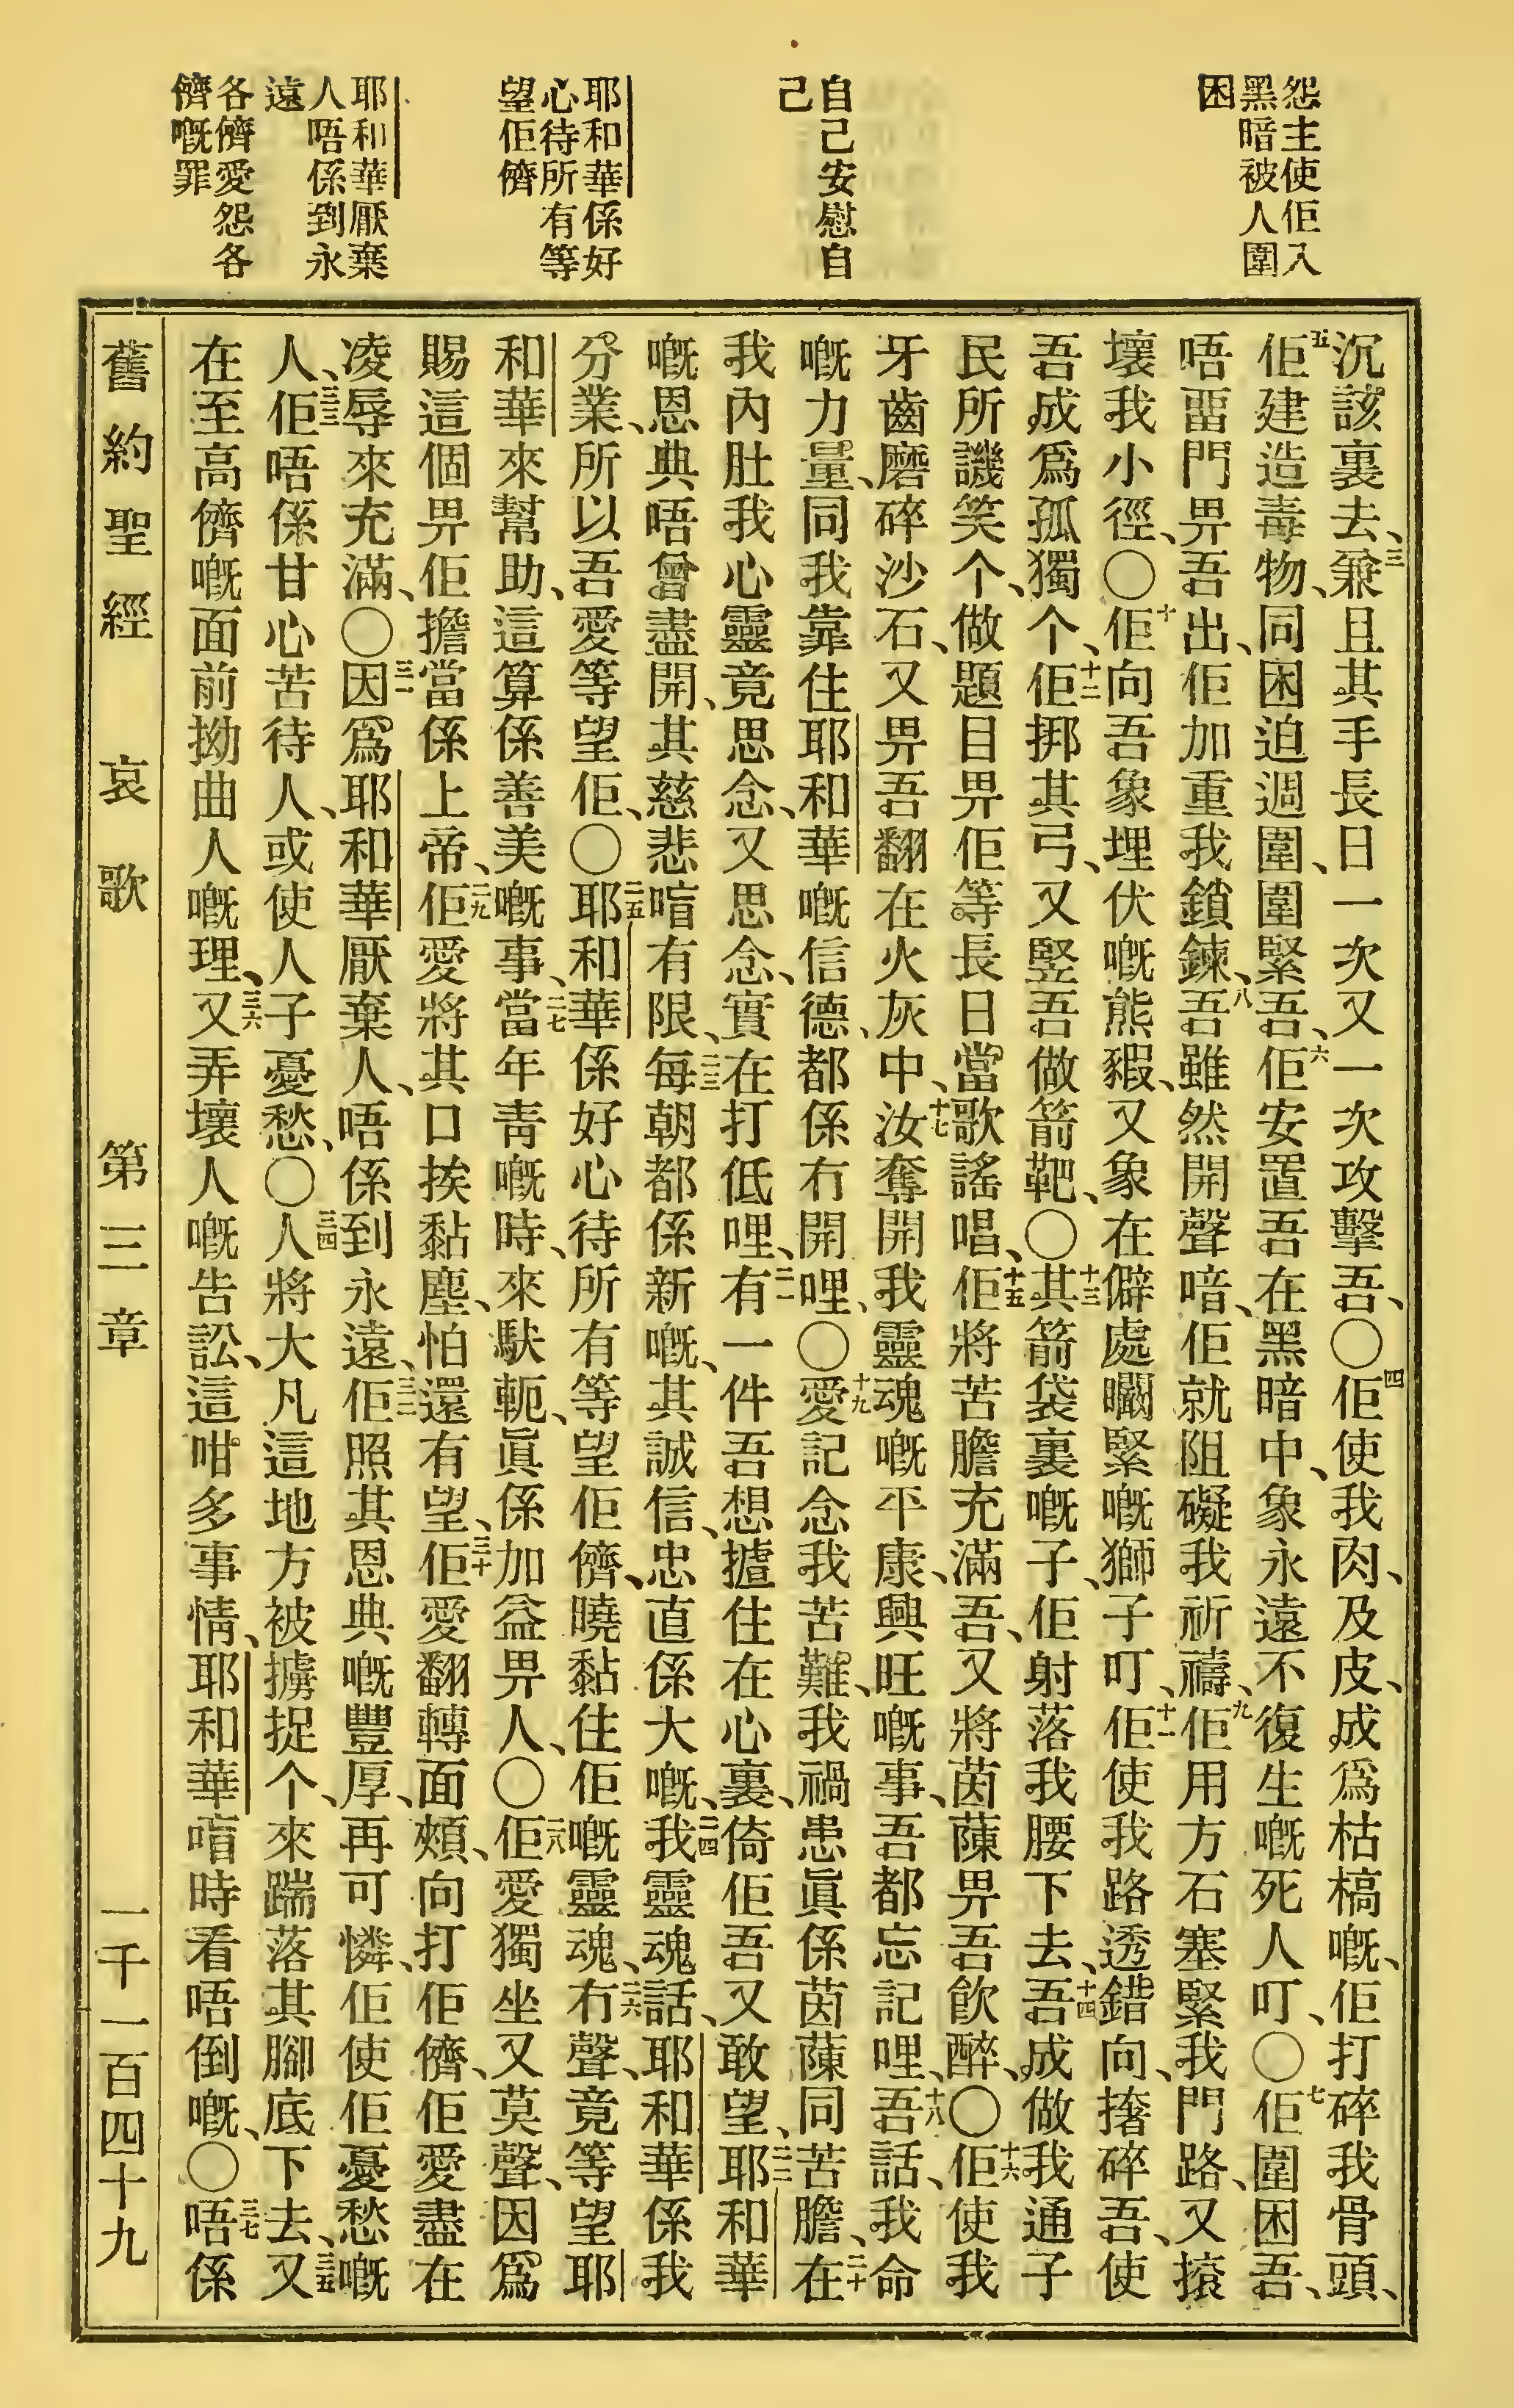 怨主使佢入
黑暗被人圍
困
自己安慰自
己
耶和華係好
心待所有等
望佢儕
耶和華厭棄
人唔係到永
遠
各儕愛怨各
儕嘅罪
沉該裏去、三兼且其手長日一次又一次攻擊吾、〇四佢使我肉、及皮、成爲枯槁嘅、佢打碎我骨頭、
五佢建造毒物、同困迫週圍、圍緊吾、六佢安置吾在黑暗中、象永遠不復生嘅死人叮、〇七佢圍困吾、
唔畱門畀吾出、佢加重我鎖鍊、八吾雖然開聲喑、佢就阻礙我祈禱、九佢用方石塞緊我門路、又擯
壞我小徑、〇十佢向吾象埋伏嘅熊豭、又象在僻處𡅏緊嘅獅子叮、十一佢使我路透錯向、撦碎吾、使
吾成爲孤獨个、十二佢挷其弓、又竪吾做箭靶、〇十三其箭袋裏嘅子、佢射落我腰下去、十四吾成做我通子
民所譏笑个、做題目畀佢等長日當歌謠唱、十五佢將苦膽充滿吾、又將茵蔯畀吾飮醉、〇十六佢使我
牙齒磨碎沙石、又畀吾翻在火灰中、十七汝奪開我靈魂嘅平康、興旺嘅事、吾都忘記哩、十八吾話、我命
嘅力量、同我靠住耶和華嘅信德、都係冇開哩、〇十九愛記念我苦難、我禍患眞係茵蔯同苦膽、二十在
我內肚我心靈竟思念、又思念、實在打低哩、二一有一件吾想摣住在心裏、倚佢吾又敢望、二二耶和華
嘅恩典唔曾盡開、其慈悲唁有限、二三每朝都係新嘅、其誠信、忠直係大嘅、二四我靈魂話、耶和華係我
分業、所以吾愛等望佢、〇二五耶和華係好心待所有等望佢儕、曉黏住佢嘅靈魂、二六冇聲、竟等望耶
和華來幫助、這算係善美嘅事、二七當年靑嘅時、來馱軛、眞係加益畀人、〇二八佢愛獨坐又莫聲、因爲
賜這個畀佢擔當係上帝、二九佢愛將其口挨黏塵、怕還有望、三十佢愛翻轉面頰、向打佢儕、佢愛盡在
凌辱來充滿、〇三一因爲耶和華厭棄人、唔係到永遠、三二佢照其恩典嘅豐厚、再可憐、佢使佢憂愁嘅
人、三三佢唔係甘心苦待人、或使人子憂愁、〇三四人將大凡這地方被擄捉个、來踹落其腳底下去、三五又
在至高儕嘅面前拗曲人嘅理、三六又弄壞人嘅告訟、這咁多事情、耶和華唁時看唔倒嘅、〇三七唔係
舊約聖經　哀歌　第三章　一千一百四十九